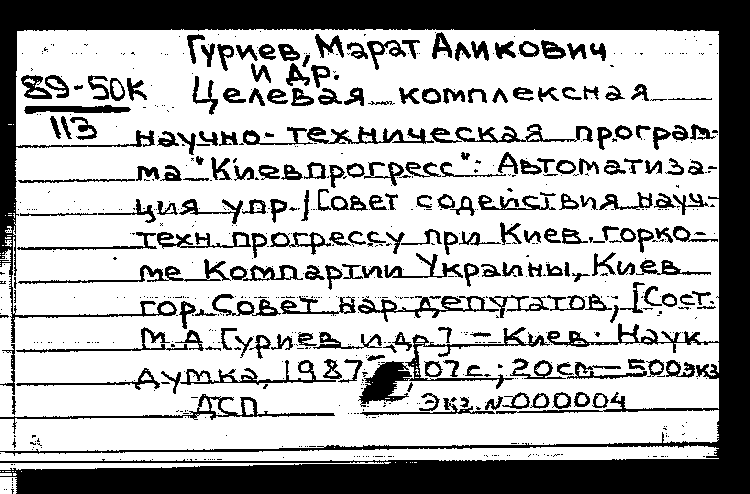 Гуриев, Марат Аликович
и др.
89-50К Целевая комплексная
113 научно-техническая програм-
ма "Киевпрогресс": Автоматиза-
ция упр./[Совет содействия науч.-
техн. прогрессу при Киев. горко-
ме Компартии Украины, Киев
гор. Совет нар. депутатов; [Сост.
М.А Гуриев и др.] – Киев: Наук
думка, 1987. 107 с.; 20см – 500экз
ДСП. Экз. №000004